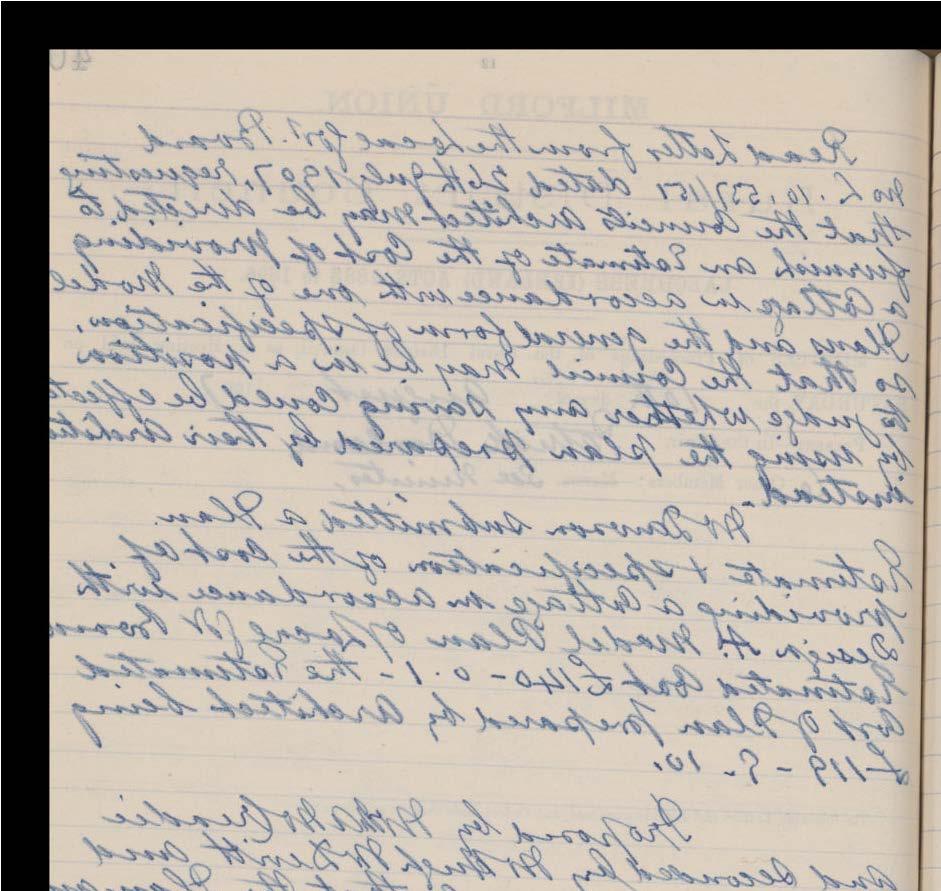 40
12
MILFORD UNION
Read Letter from the Local Govt. Board
No L. 10.537/157 dated 26th July 1907, requesting
that the Councils Architect may be directed to
furnish an Estimate of the Cost of providing
a Cottage in accordance with one of the Model
Plans and the general form of specification,
so that the Council may be in a position
to judge whether any saving could be effected
by using the plan prepared by their Architect
instead.
Mr Dawson submitted a Plan
Estimate & specification of the cost of
providing a Cottage in accordance with
Design H. Model Plan of Local Gt Board
Estimated Cost £140-0-1 - the Estimated
Cost of Plan prepared by Architect being
£119-5-10.
Proposed by
and seconded by Mr Hugh McDevitt and